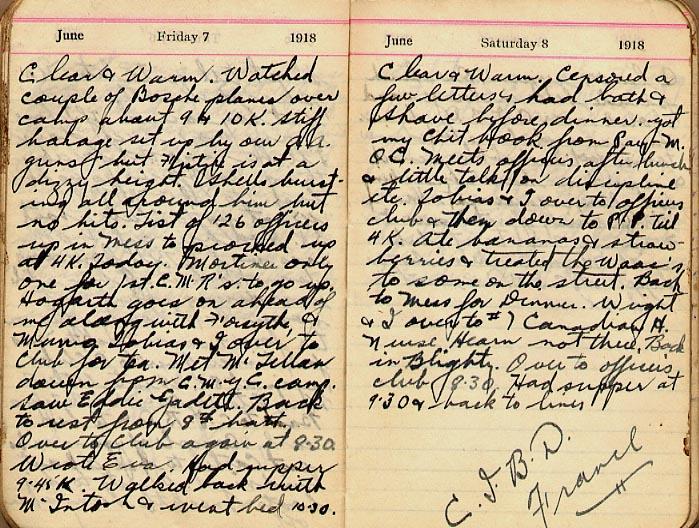 June Friday 7 1918
Clear & Warm. Watched
couple of Bosche planes over
camp about 9 & 10 K. Stiff
barage set up by our a.a.
guns but Fritz is at a
dizzy height. Shells burst-
ing all around him but
no hits. List of 126 officers
up in Mess to proceed up
at 4K. Today. Mortimer only
one for 1st. C.M.R's. to go up.
Hogarth goes on ahead of
me along with Forsythe, &
Munro Tobias & I over to
Club for tea. Met McLellan
down from C.M.G.C. camp.
Saw Eddie Back
to rest from 9th
Over to Club again at 9:30.
Wrote Eva. Had supper
9.45K. Walked back with
McIntosh & went bed 10.30.
June Saturday 8 1918
Clear & Warm. Censored a
few letters & had bath &
shave before dinner. got
my chit book from Paym.
O.C. Meets officers after lunch
& little talk on discipline
etc. Tobias & I over to officers
club & then down to P.P. till
4K. Ate bananas & straw-
berries & treated the Waac's
to some on the street. Back
to Mess for Dinner. Wright
& I over to #7 Canadian H.
Nurse Hearn not there. Back
in Blighty. Over to officers
club 8.30. Had supper at
9.30 & back to lines
C.I.B.D.
France